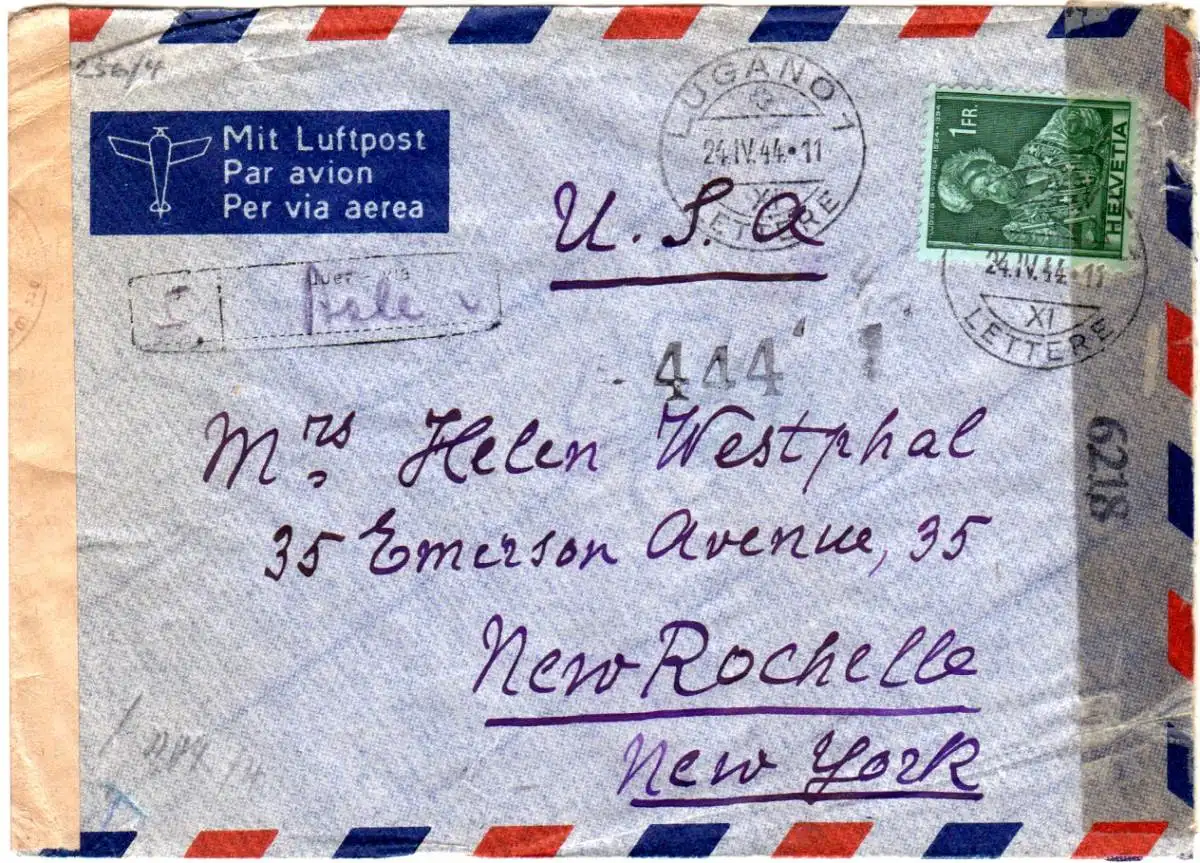 256/4
Mit Luftpost
Par avion
Per via aerea
LUGANO 1
24.IV.44•11
XI
LETTERE
1 FR.
HELVETIA
24.IV.44•11
XI
LETTERE
U.S.A
444
Mrs Helen Westphal
35 Emerson Avenue, 35
New Rochelle
New York
6218